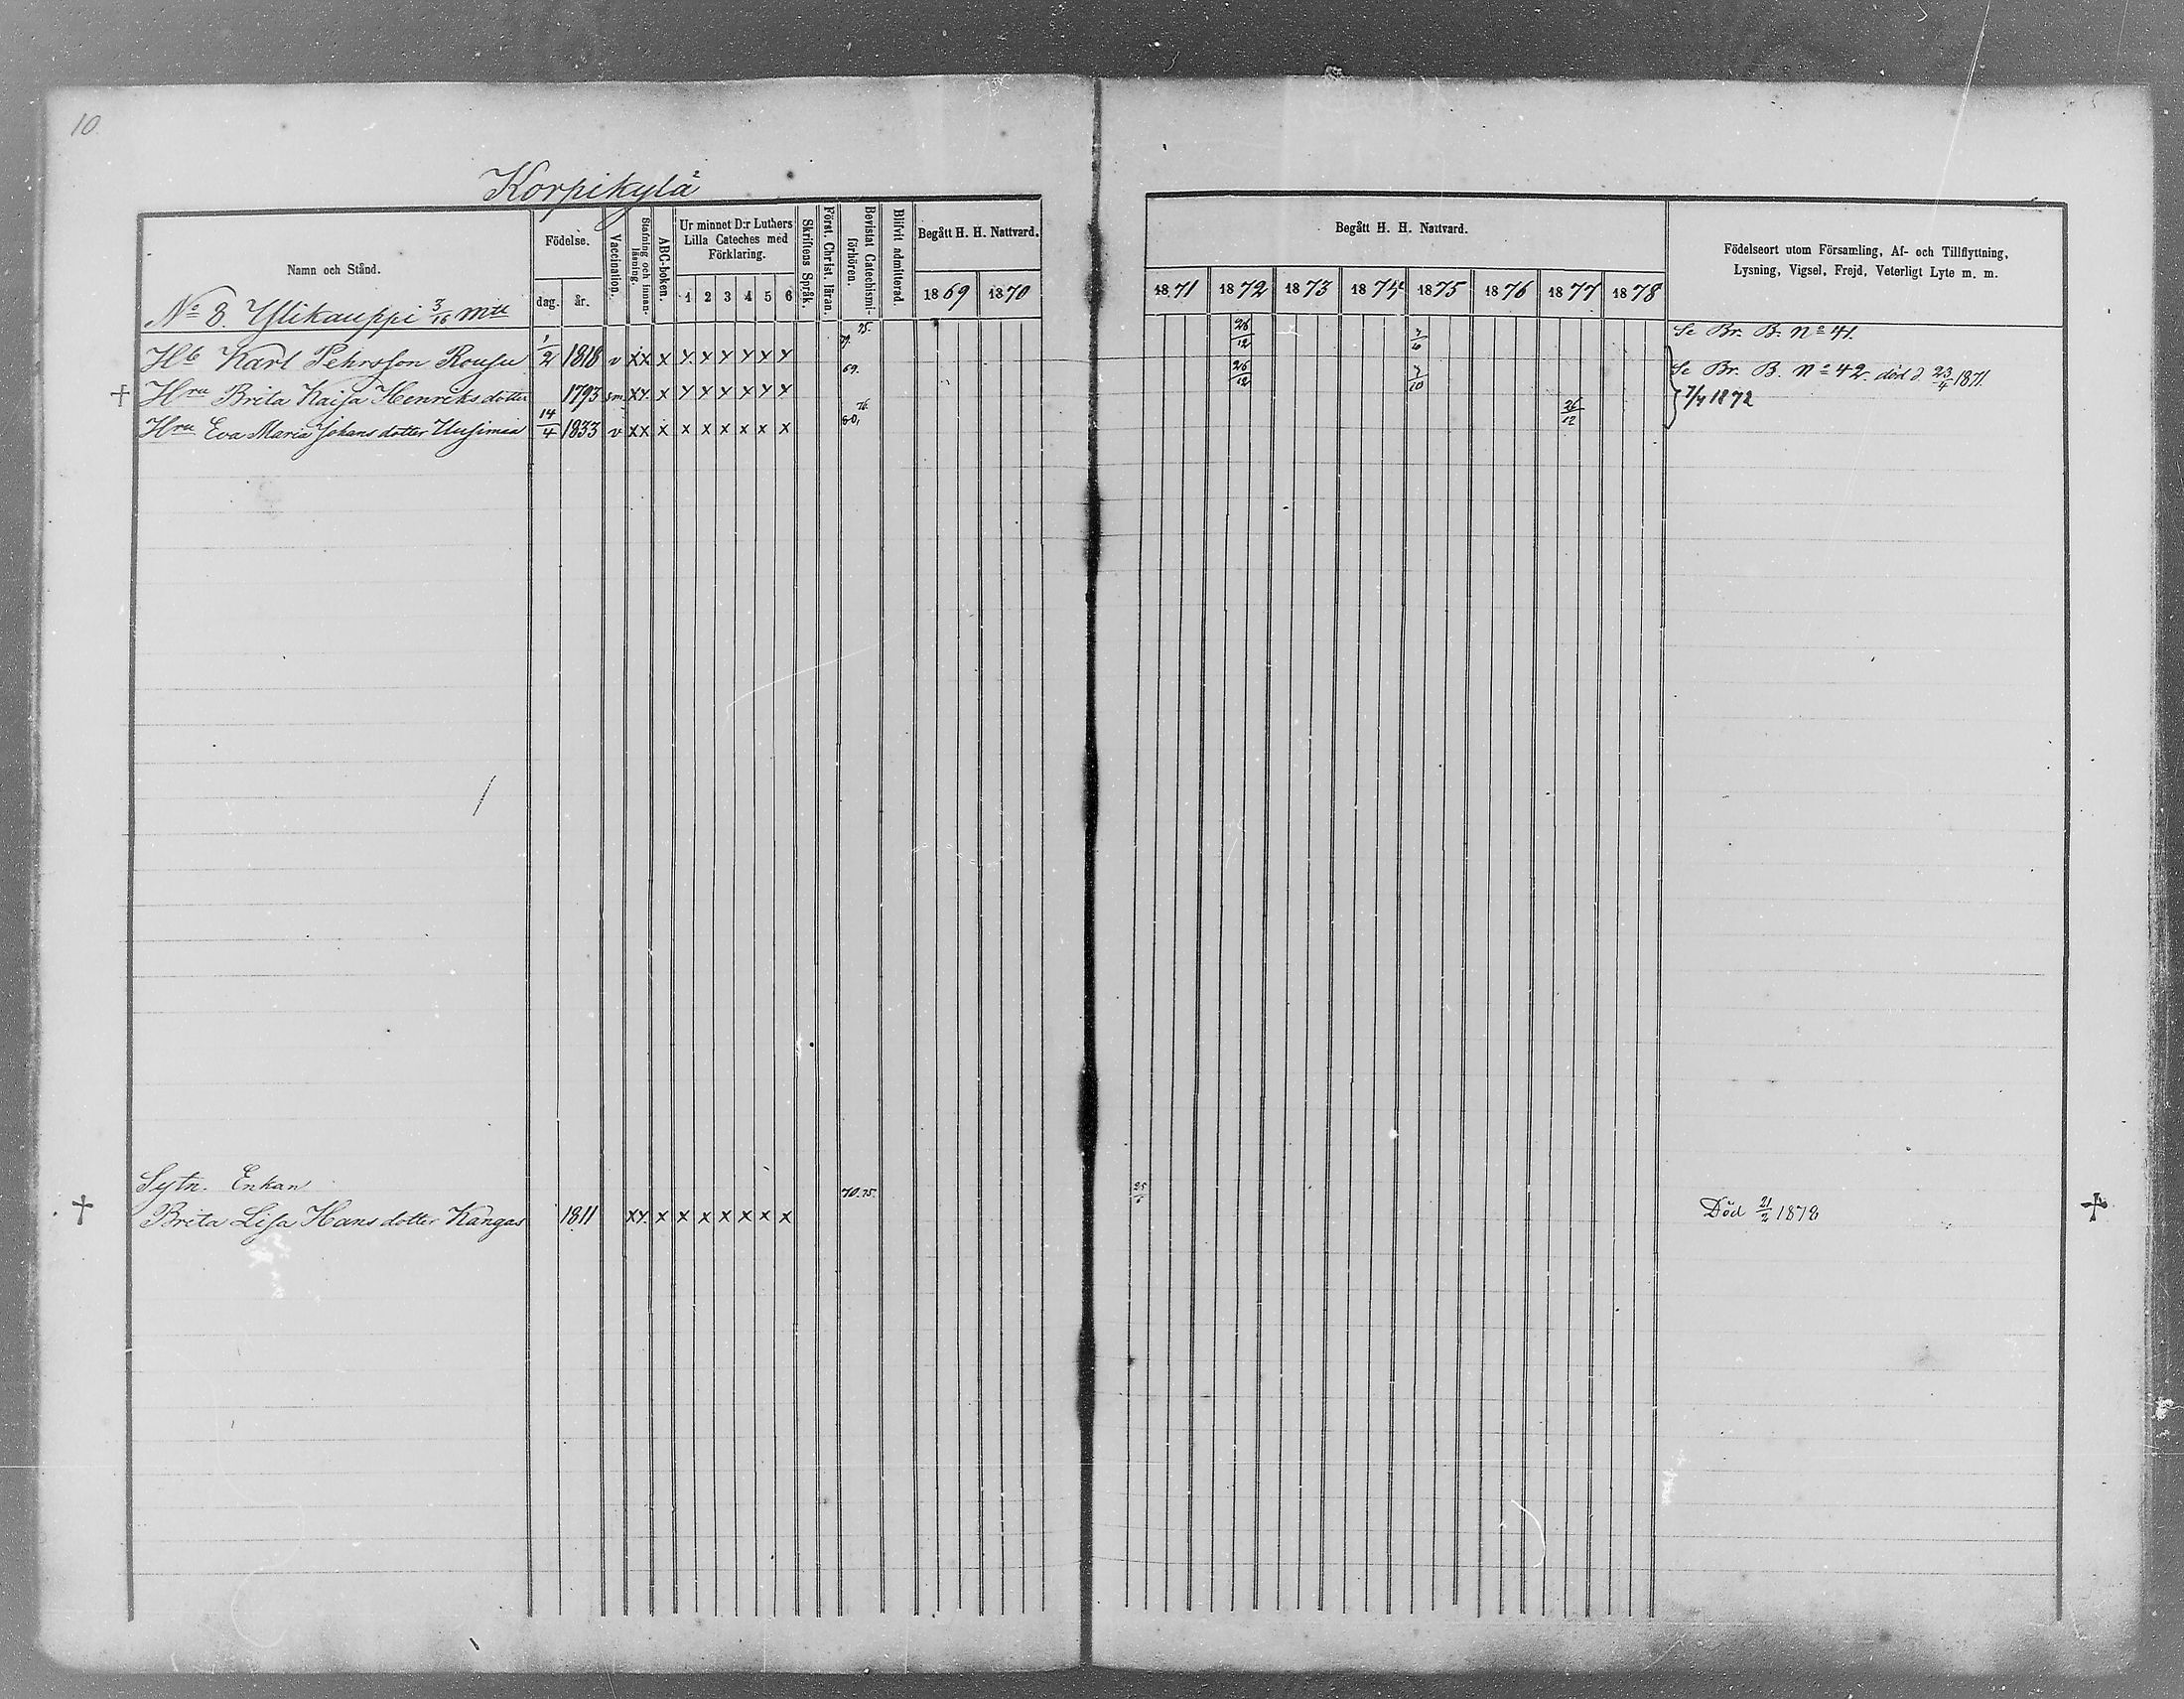 10
Korpikylä
Namn och Stånd.
Födelse.
dag.
år.
Vaccination.
Stafning och innan-läsning.
ABC-boken.
Ur minnet D:r Luthers Lilla Cateches med Förklaring.
1 2 3 4 5 6
Skriftens Språk.
Först. Christ. läran.
Bevistat Catechismi-förhören.
Blifvit admitterad
Begått H. H. Nattvard.
1869 1870
Begått H. H. Nattvard.
1871 1872 1873 1874 1875 1876 1877 1878
Födelseort utom Församling, Af- och Tillflyttning,
Lysning, Vigsel, Frejd, Veterligt Lyte m. m.
No 8. Ylikauppi 3/16 mtl
Hb Karl Pehrsson Rousu 1/2 1818 v xx x x x x x x x 75. 26/12 Se Br. B. No 41.
† Hru Brita Kaisa Henriksdotter 1793 xx x x x x x x x 69. 26/12 7/10 Se Br. B. No 42. död d. 23/4 1871.
7/4 1872
Hru Eva Maria Johansdotter Uusimaa 14/4 1833 v xx x x x x x x x 76. 26/12
Sytn. Enkan
† Brita Lisa Hansdotter Kangas 1811 xx x x x x x x x 70. 75. Död 21/2 1878 †